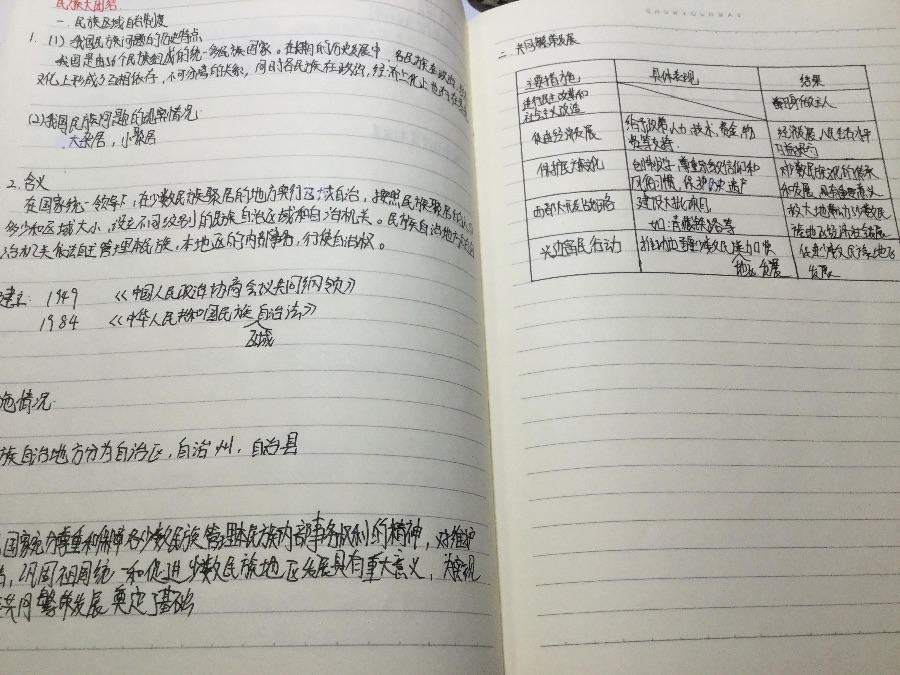 民族大团结
一.民族区域自治制度
1. (1) 我国民族问题的历史特点
我国是由56个民族组成的统一多民族国家。在长期的历史发展中,各民族在政治,
文化上形成了相互依存,不可分离的关系,同时各民族在政治,经济文化上也
(2)我国民族问题的现实情况:
大杂居,小聚居
2. 含义
在国家统一领导下,在少数民族聚居的地方实行区域自治,按照民族聚居的人口
多少和区域大小,设立不同级别的民族自治区域和自治机关。民族自治地方
治机关依法自主管理本民族,本地区的内部事务,行使自治权。
建立: 1949 《中国人民政治协商会议共同纲领》
1984 《中华人民共和国民族自治法》
区域
施情况:
族自治地方分为自治区,自治州,自治县
国家充分尊重和保障各少数民族管理本民族内部事务权利的精神,对维护
,巩固祖国统一和促进少数民族地区发展具有重大意义,
共同繁荣发展奠定了基础
二.共同繁荣发展
主要措施 具体表现 结果
进行民主改革和社会主义改造 翻身做主人
促进经济发展 给予政策,人力,技术,资金,物资等支持. 经济发展,人民生活水平
保护民族文化 尊重宗教信仰和风俗习惯,保护历史遗产 对少数民族文化的传承和发展,具有重要意义
西部大开发战略 建设大批项目 如:青藏铁路等 极大地推动了少数民族地区经济社会发展
兴边富民行动 推动边疆少数民族加快地区发展 促进少数民族地区发展